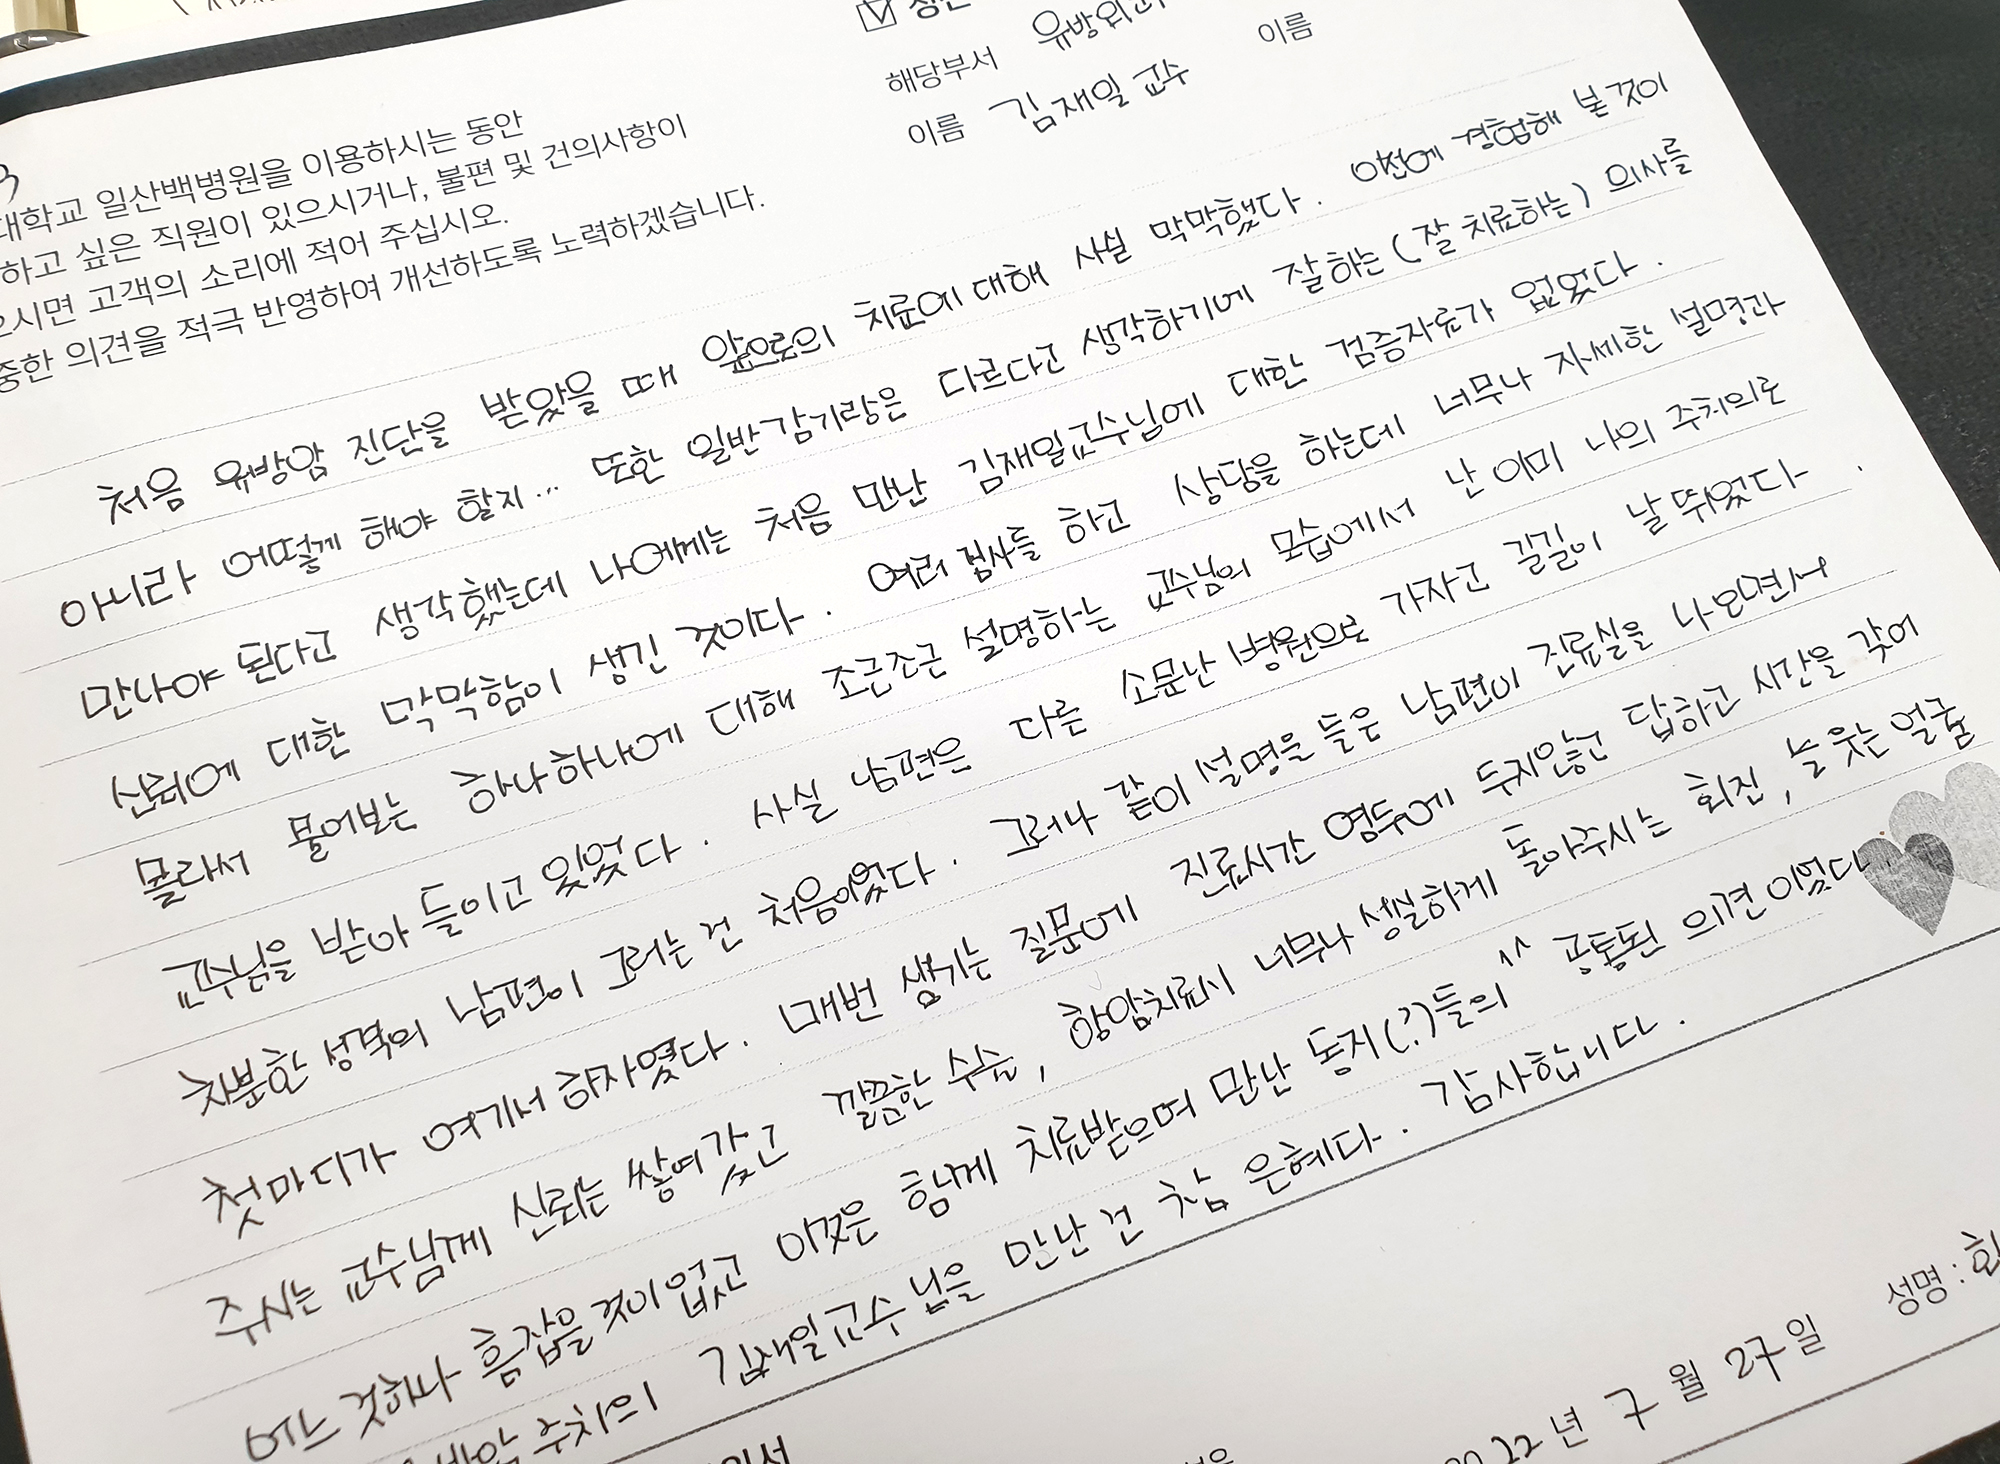 해당부서 유방외과
이름 김재일 교수 이름
대학교 일산백병원을 이용하시는 동안
하고 싶은 직원이 있으시거나, 불편 및 건의사항이
으시면 고객의 소리에 적어 주십시오.
중한 의견을 적극 반영하여 개선하도록 노력하겠습니다.
처음 유방암 진단을 받았을 때 앞으로의 치료에 대해 사실 막막했다. 이전에 경험해 본 것이
아니라 어떻게 해야 할지... 또한 일반감기랑은 다르다고 생각하기에 잘하는(잘 치료하는) 의사를
만나야 된다고 생각했는데 나에게는 처음 만난 김재일교수님에 대한 검증자료가 없었다.
선택에 대한 막막함이 생긴 것이다. 여러 검사들 하고 상담을 하는데 너무나 자세한 설명과
몰라서 물어보는 하나하나에 대해 조근조근 설명하는 교수님의 모습에서 난 이미 나의 주치의로
교수님을 받아들이고 있었다. 사실 남편은 다른 소문난 병원으로 가자고 길길이 날 뛰었다.
차분한 성격의 남편이 그러는 건 처음이었다. 그러나 같이 설명을 들은 남편이 진료실을 나오면서
첫마디가 여기서 하자였다. 매번 생기는 질문에 진료시간 염두에 두지않고 답하고 시간을 갖어
주시는 교수님께 신뢰는 쌓여갔고 깔끔한 수술, 항암치료시 너무나 성실하게 돌아주시는 회진, 늘 웃는 얼굴
어느 것하나 흠잡을 것이 없고 이것은 함께 치료받으며 만난 동지(?)들의 ^^ 공통된 의견이었다..
주치의 김재일교수님을 만난 건 참 은혜다. 감사합니다.
22년 7월 27일 성명: